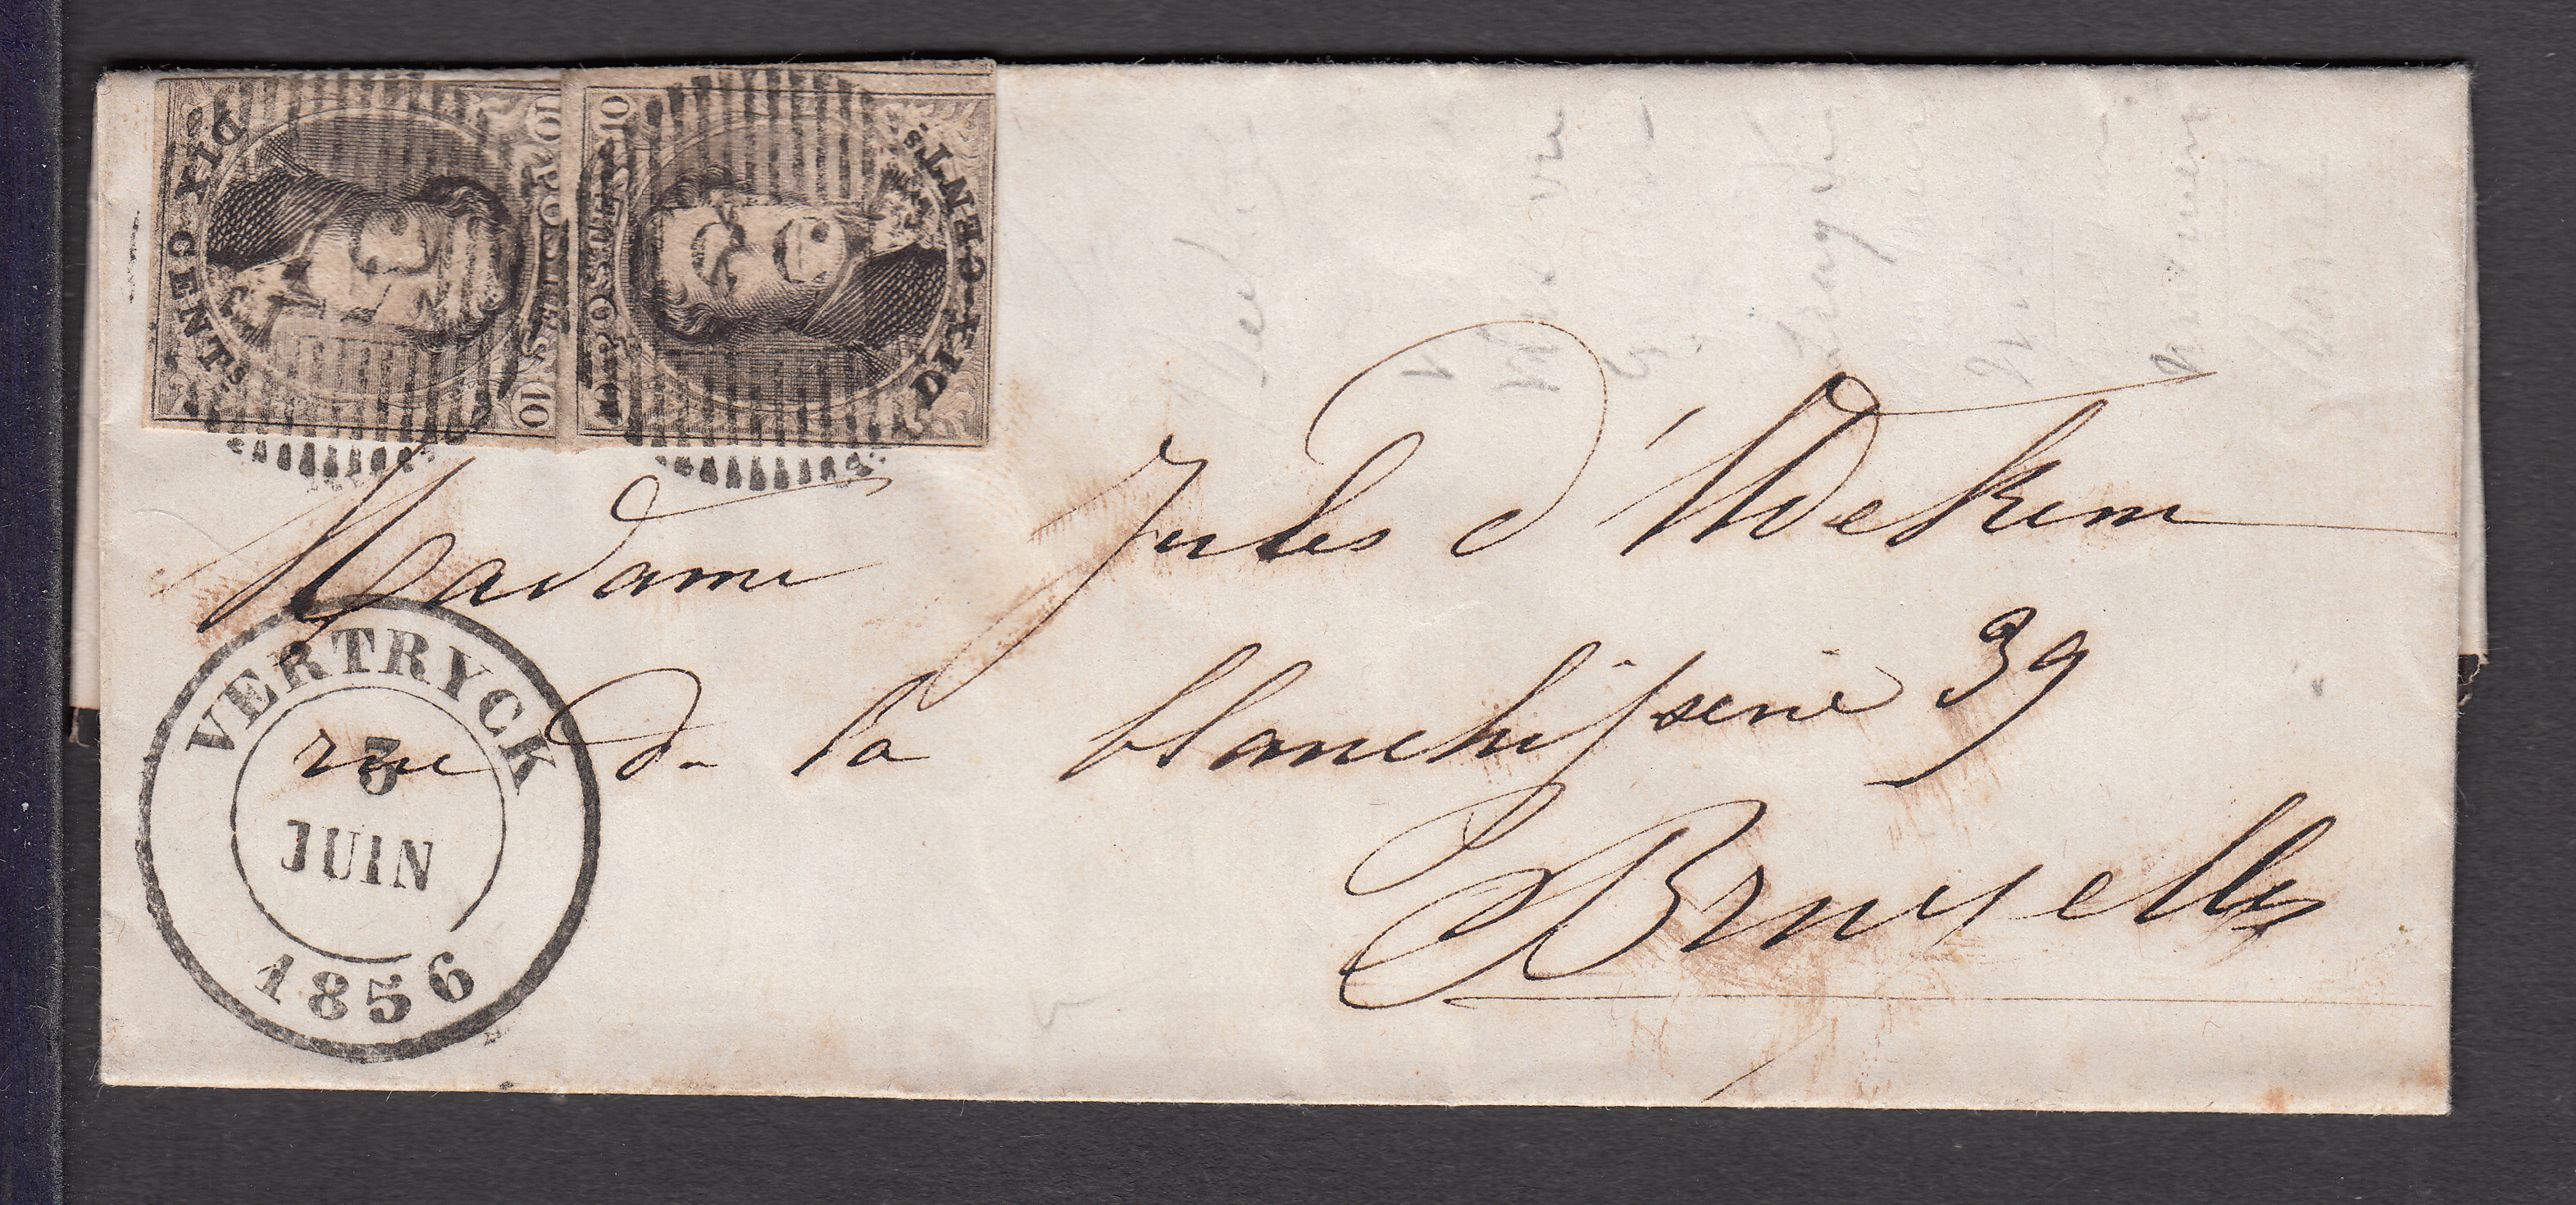 10 POSTES 10
DIX CENTS.
10 POSTES 10
DIX CENTS.
Madame Jules d'Udekem
rue de la blanchisserie 39
Bruxelles
VERTRYCK
3
JUIN
1856